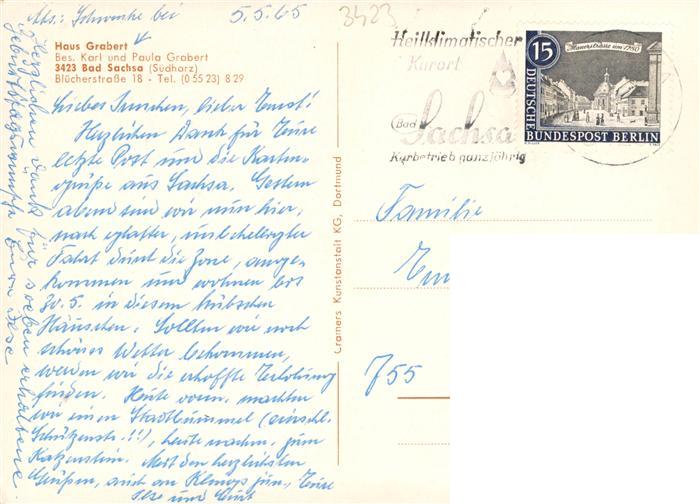 Abs: Schwenke bei 5.5.65
3423
Haus Grabert
Bes. Karl und Paula Grabert
3423 Bad Sachsa (Südharz)
Blücherstraße 18 - Tel. (0 55 23) 8 29
Heilklimatischer
Kurort
Bad
Sachsa
Kurbetrieb ganzjährig
15
Mauerstrasse um 1780
DEUTSCHE
BUNDESPOST BERLIN
lieber Ernst!
Herzlichen Dank für Eure
letzte Post und die Karten-
grüße aus Sachsa. Gestern
abend sind wir nun hier,
nach glatter, unbehelligter
Fahrt durch die Zone, ange-
kommen und wohnen bis
20.5. in diesem hübschen
Häuschen. Sollten wir noch
schönes Wetter bekommen,
werden wir die erhoffte Erholung
finden. Heute vorm. machten
wir einen Stadtbummel (einschl.
Schützenstr.!!), heute nachm. zum
Katzenstein. Mit den herzlichsten
Grüßen, auch an jun., Eure
Ilse und
Herzlichen Dank für soeben erhaltene
Geburtstagswünsche Eure Ilse
Cramers Kunstanstalt KG, Dortmund
Familie
755